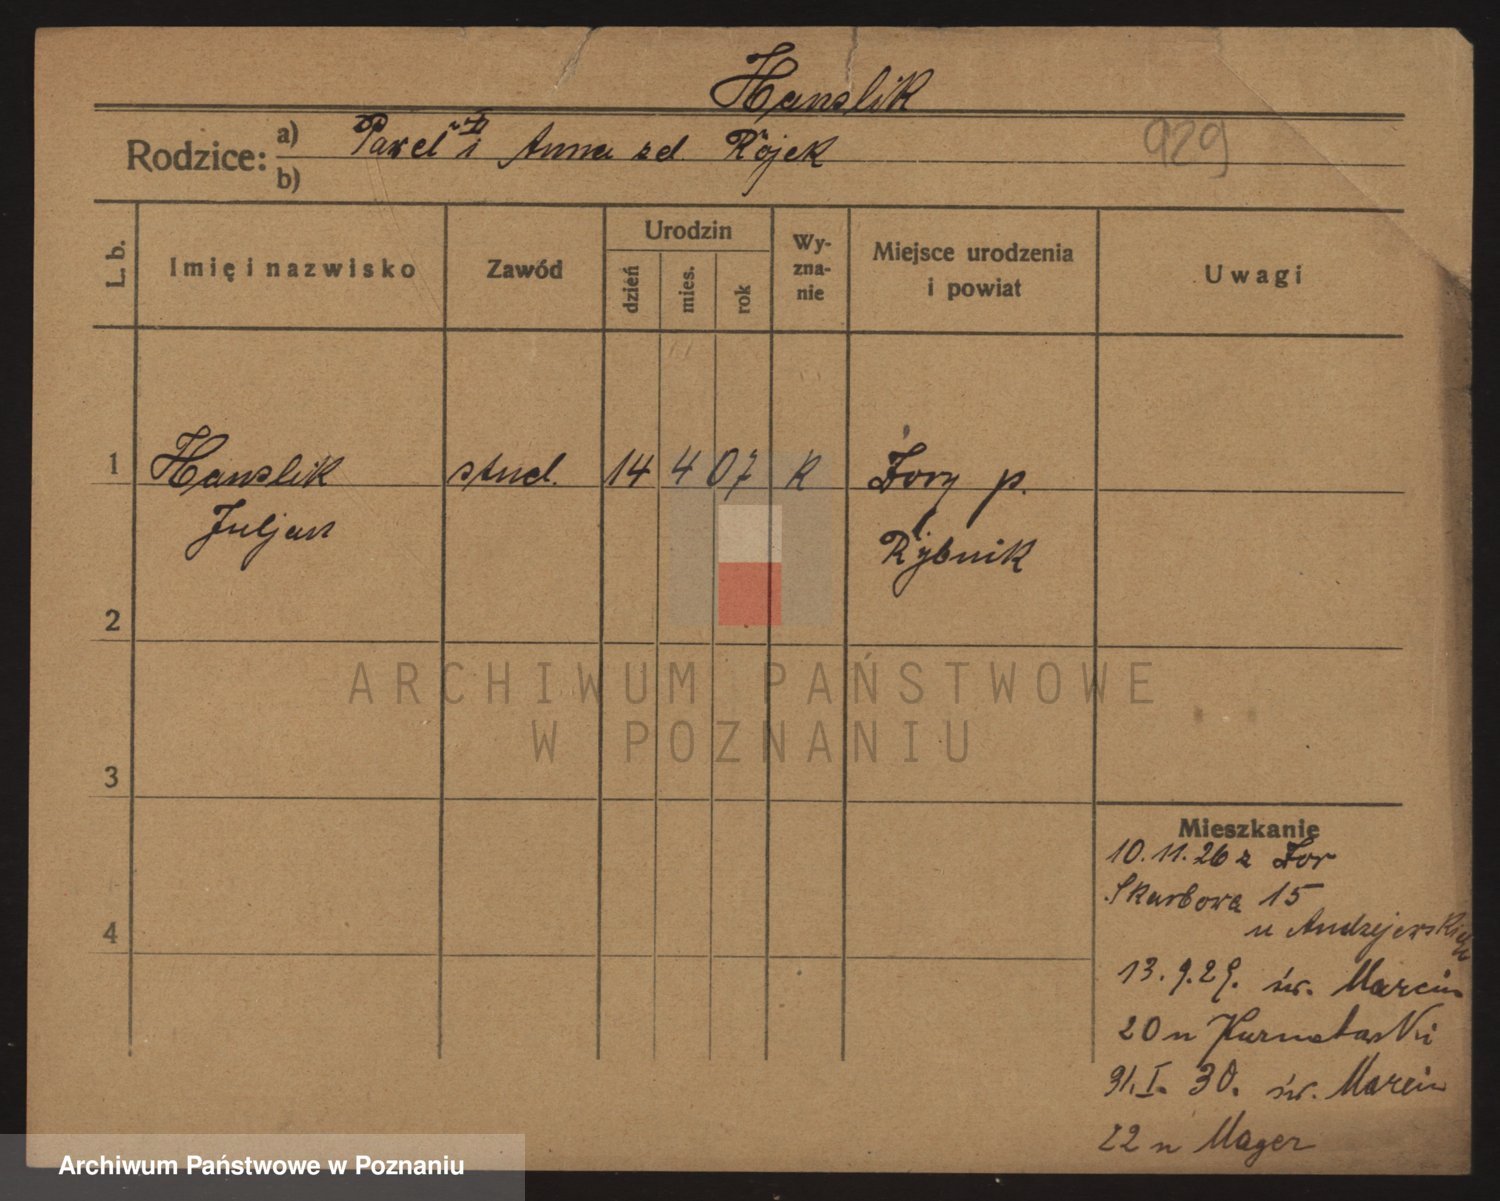 Hanslik
929
Rodzice: a) Paweł i Anna zd Rójek
b)
L. b.
Imię i nazwisko
Zawód
Urodzin
dzień
mies.
rok
Wy-
zna-
nie
Miejsce urodzenia
i powiat
Uwagi
1 Hanslik stud. 14 4 07 k Żory p.
Juljan Rybnik
2
3
4
ARCHIWUM PAŃSTWOWE
W POZNANIU
Mieszkanie
10.11.26 z Żor
Skarbowa 15
u Andrzejewskich
13.9.29. św. Marcin
20 u Kurnatowski
31.I.30. św. Marcin
22 u Mager
Archiwum Państwowe w Poznaniu